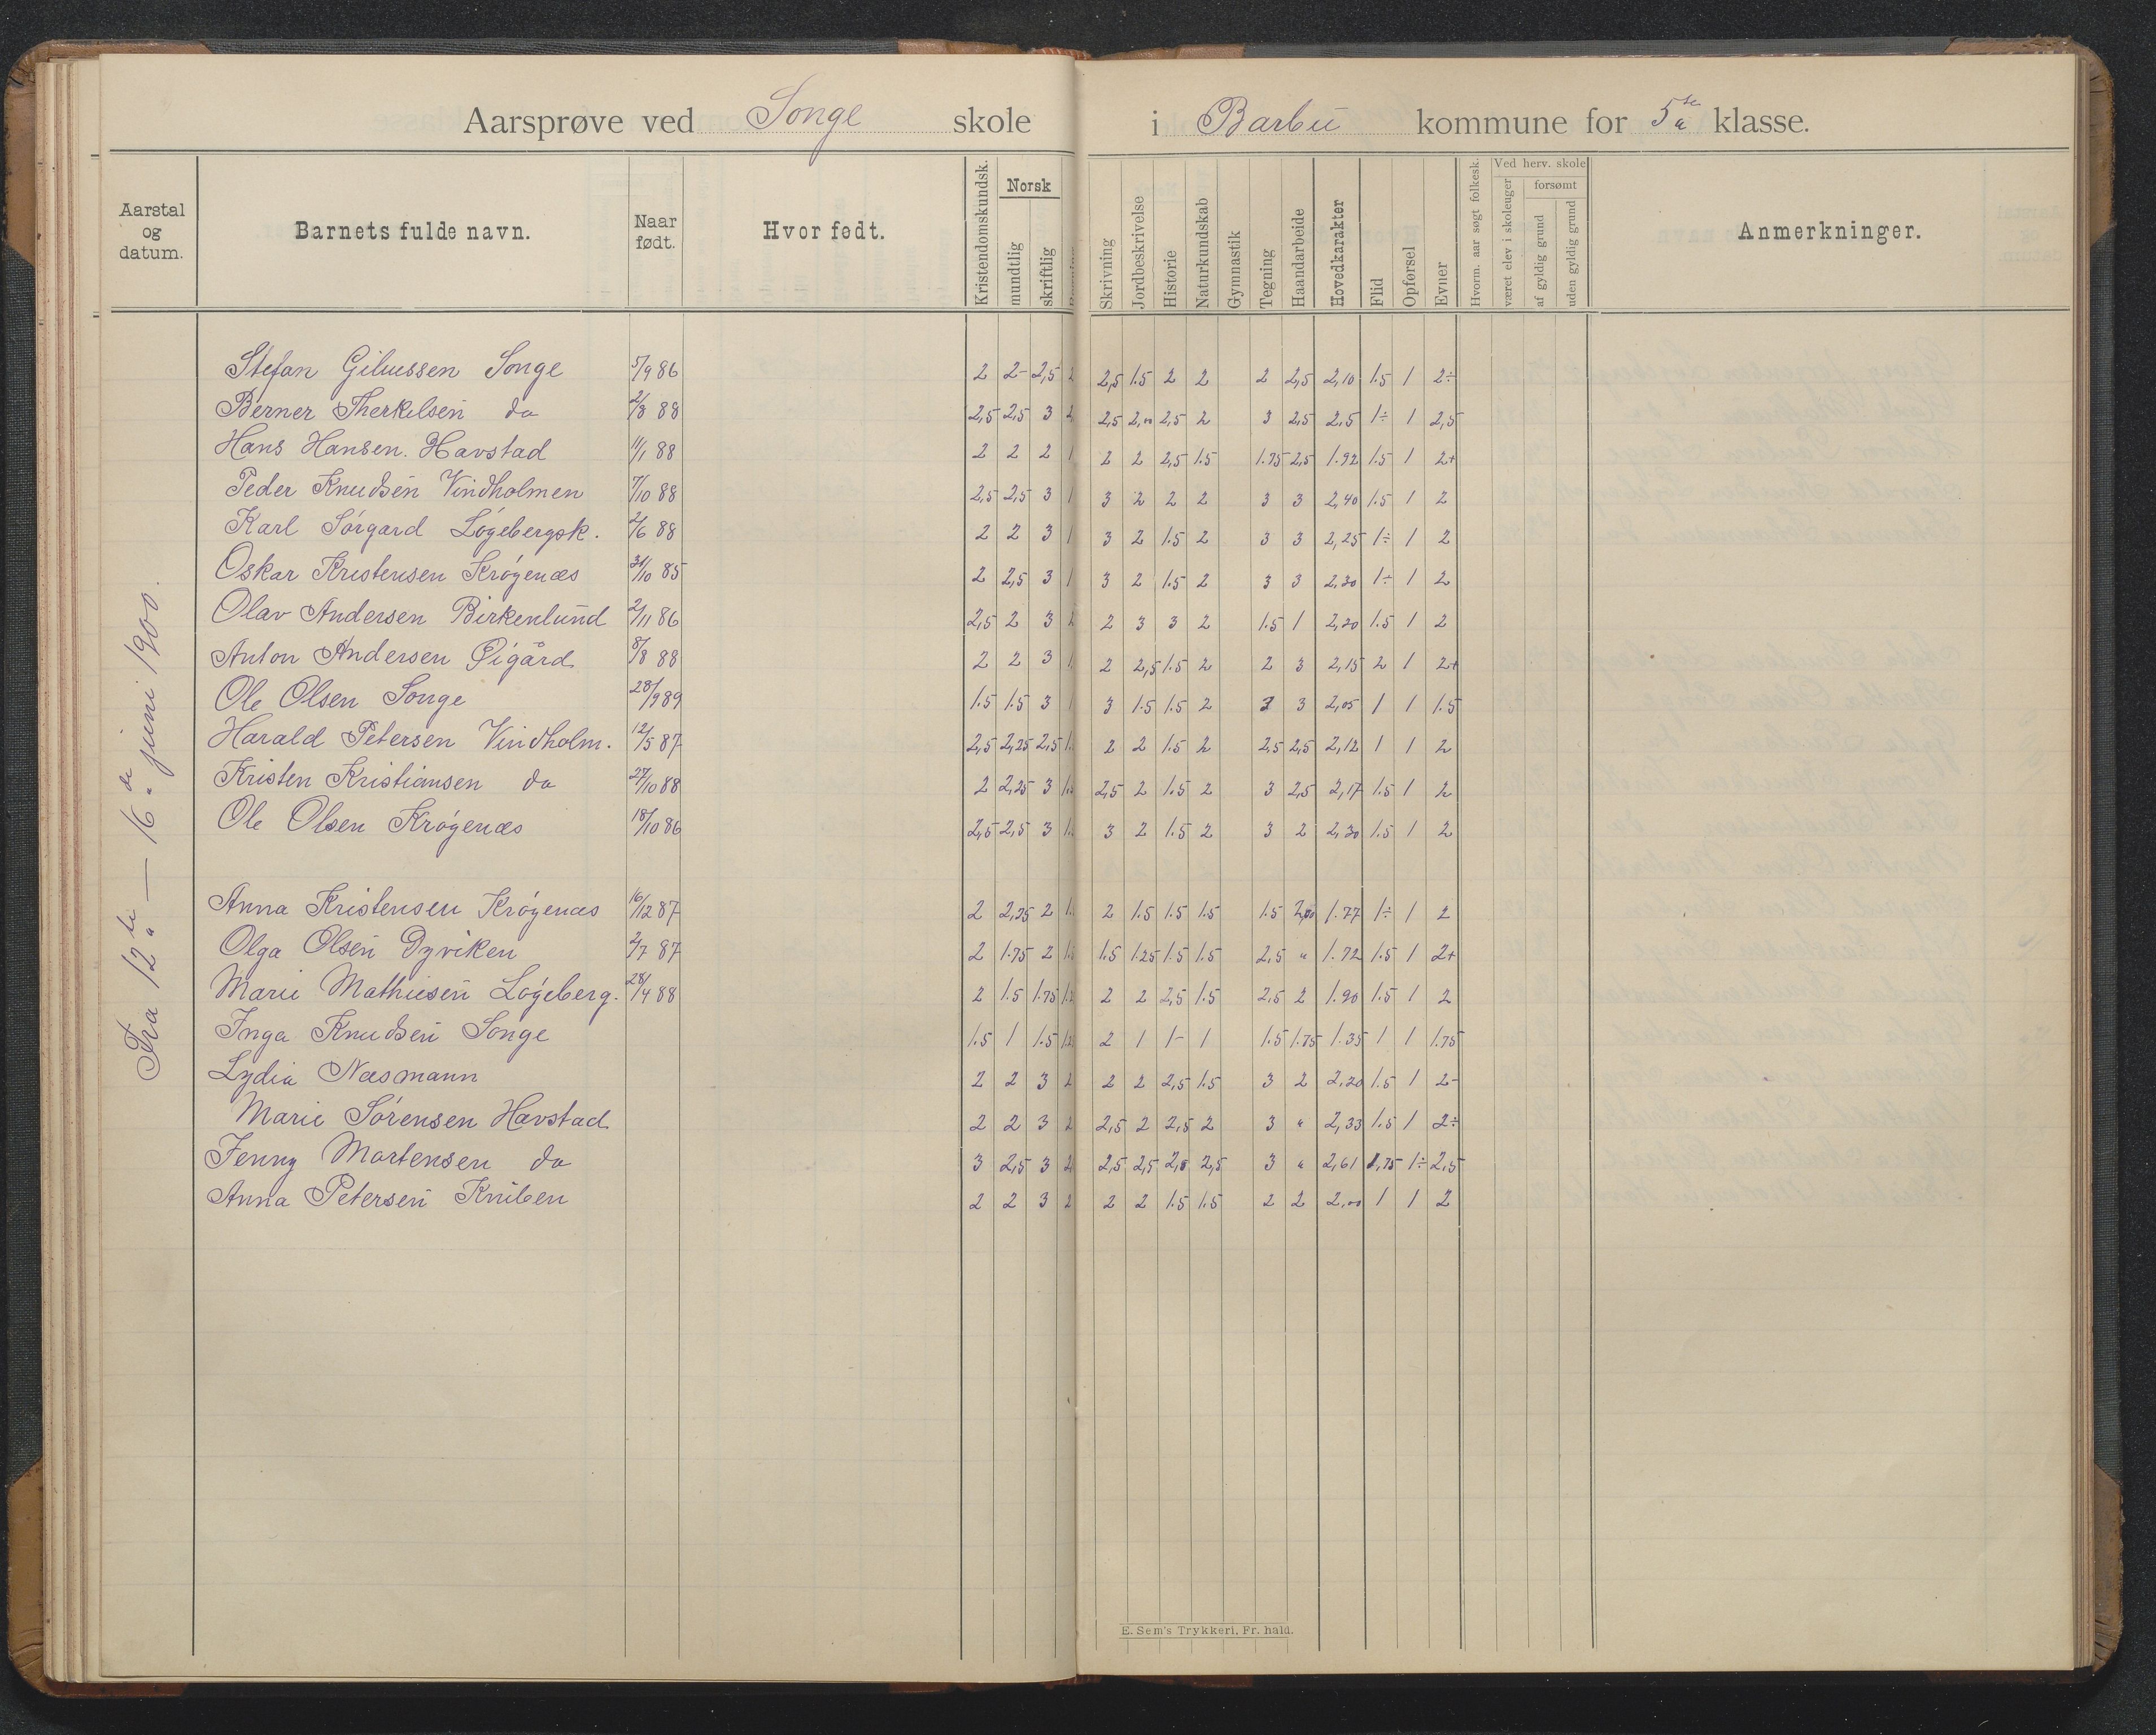 Aarsprøve ved Songe skole i Barbu kommune for 5te klasse.
Aarstal og datum. Barnets fulde navn. Naar født. Hvor fedt. Kristendomskundsk. Norsk mundtlig skriftlig Skrivning Jordbeskrivelse Historie Naturkundskab Gymnastik Tegning Haandarbeide Hovedkarakter Flid Opførsel Evner Hvorm. aar søgt folkesk. Ved herv. skole været elev i skoleuger forsømt af gyldig grund uden gyldig grund Anmerkninger.
Fra 12te — 16de juni 1900.
Stefan Songe 5/9 86 2 2- 2,5 2 2,5 1.5 2 2 2 2,5 2,10 1.5 1 2÷
Berner Therkelsen do 2/8 88 2,5 2,5 3 2 2,5 2,00 2,5 2 3 2,5 2,5 1÷ 1 2,5
Hans Hansen. Havstad 11/1 88 2 2 2 1 2 2 2,5 1.5 1.75 2,5 1.92 1.5 1 2+
Peder Knudsen Vindholmen 7/10 88 2,5 2,5 3 1 3 2 2 2 3 3 2,40 1.5 1 2
Karl Sørgard Løgebergsk. 2/6 88 2 2 3 1 3 2 1.5 2 3 3 2,25 1÷ 1 2
Oskar Kristensen Krøgenæs 31/10 85 2 2,5 3 1 3 2 1.5 2 3 3 2,30 1÷ 1 2
Olav Andersen Birkenlund 2/11 86 2,5 2 3 2 2 3 3 2 1.5 1 2,20 1.5 1 2
Anton Andersen Øigård 8/8 88 2 2 3 1. 2 2,5 1.5 2 2 3 2,15 2 1 2+
Ole Olsen Songe 28/9 89 1.5 1.5 3 1 3 1.5 1.5 2 3 3 2,05 1 1 1.5
Harald Petersen Vindholm. 12/5 87 2,5 2,25 2,5 1. 2 2 1.5 2 2,5 2,5 2,12 1 1 2
Kristen Kristiansen do 27/10 88 2 2,25 3 1.5 2,5 2 1.5 2 3 2,5 2,17 1.5 1 2
Ole Olsen Krøgenæs 18/10 86 2,5 2,5 3 1. 3 2 1.5 2 3 2 2,30 1.5 1 2
Anna Kristensen Krøgenæs 16/12 87 2 2,25 2 1. 2 1.5 1.5 1.5 1.5 2,00 1.77 1÷ 1 2
Olga Olsen Dyviken 2/7 87 2 1.75 2 1.5 1.5 1.25 1.5 1.5 2,5 " 1.72 1.5 1 2+
Marie Mathiesen Løgeberg. 28/4 88 2 1.5 1.75 1.2 2 2 2,5 1.5 2,5 2 1.90 1.5 1 2
Inga Knudsen Songe 1.5 1 1.5 1.2 2 1 1- 1 1.5 1.75 1.35 1 1 1.75
Lydia Næsmann 2 2 3 2 2 2 2,5 1.5 3 2 2,20 1.5 1 2-
Marie Sørensen Havstad 2 2 3 2 2,5 2 2,5 2 3 " 2,33 1.5 1 2÷
Jenny Mortensen do 3 2,5 3 2 2,5 2,5 2,5 2,5 3 " 2,61 1,75 1÷ 2,5
Anna Petersen Kniben 2 2 3 2 2 2 1.5 1.5 2 2 2,00 1 1 2
E. Sem's Trykkeri, Fr. hald.